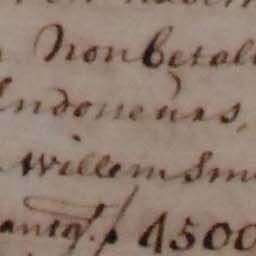 Non betal
Indoneurs,
Willem Sm
antq. / 1500